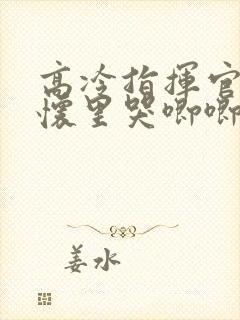 高冷指揮官
懷里哭唧唧
姜水